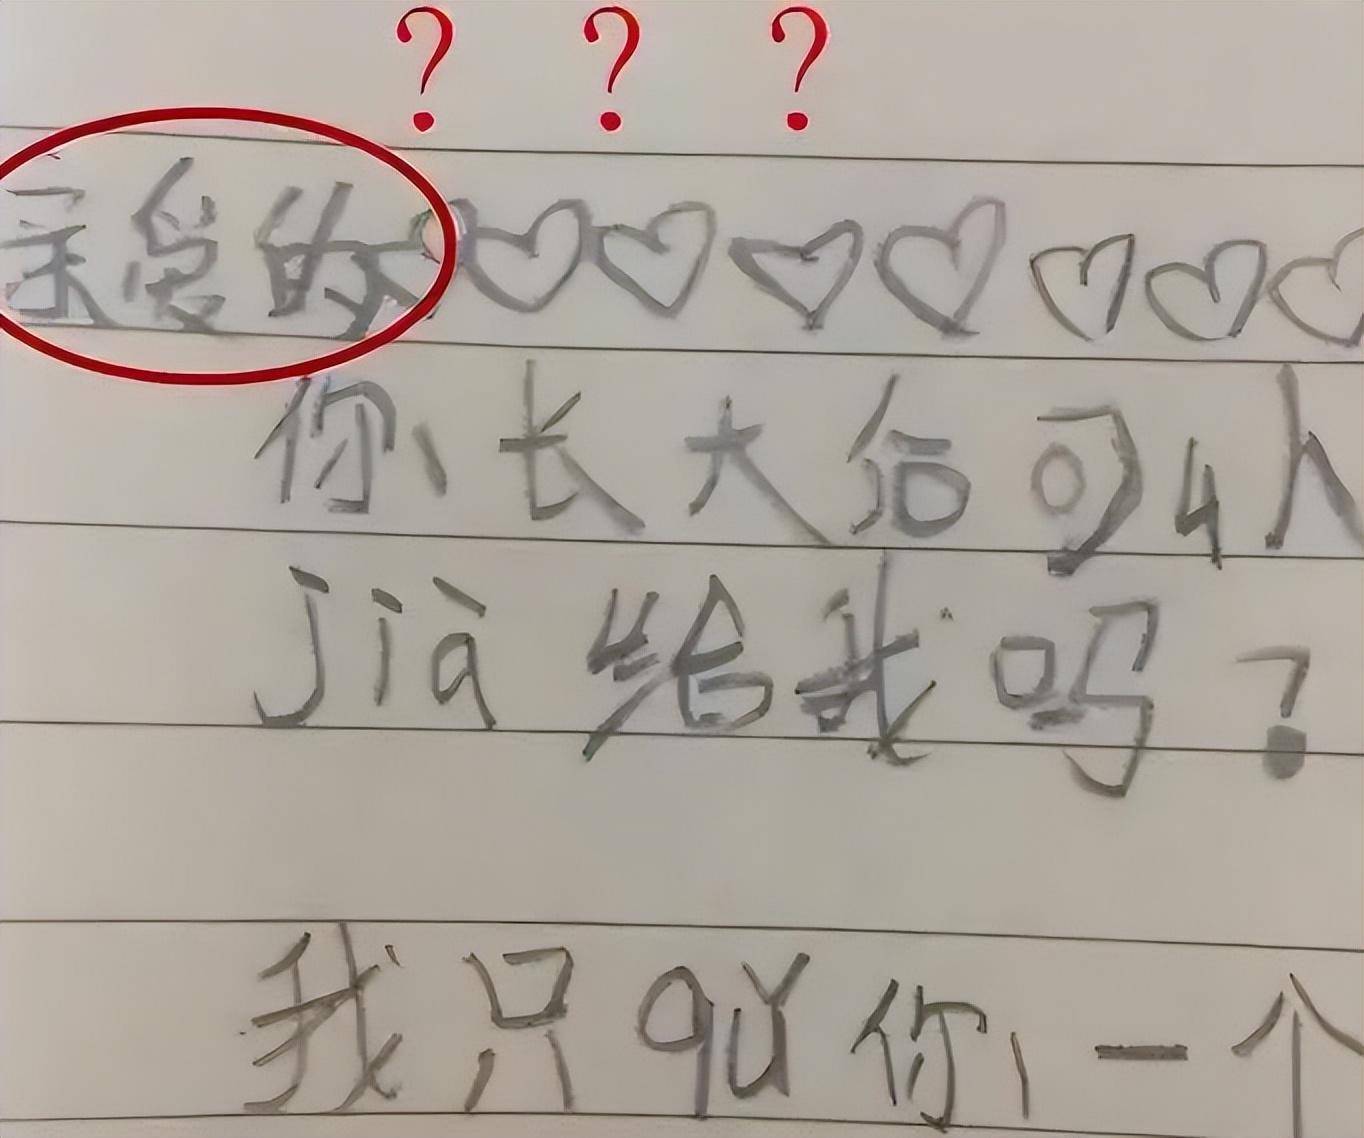 ? ? ?
亲爱的
你长大后可以
jià给我吗?
我只qǔ你一个